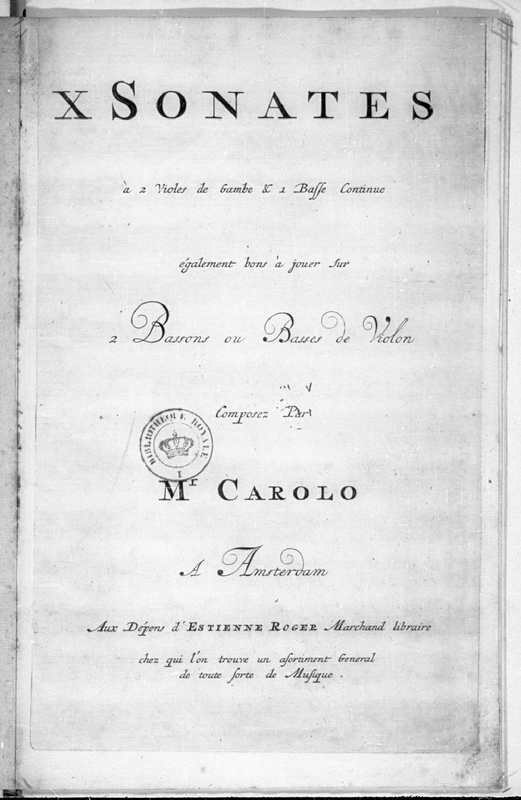 X SONATES
à 2 Violes de Gambe & 1 Baſſe Continue
également bons à jouer sur
2 Bassons ou Basses de Violon
Composez Par
BIBLIOTHEQUE ROYALE
I
Mr CAROLO
A Amsterdam
Aux Dépens d'ESTIENNE ROGER Marchand libraire
chez qui l'on trouve un asortiment General
de toute ſorte de Muſique.